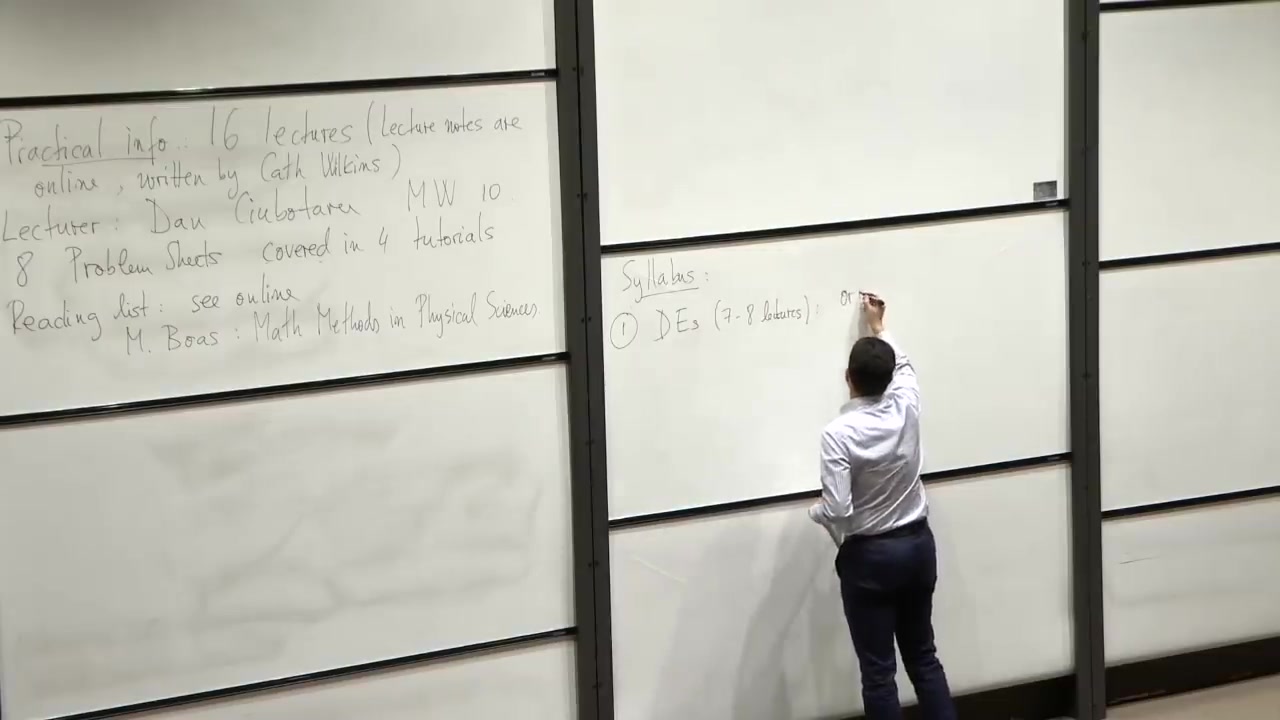 Practical info: 16 lectures (lecture notes are
online, written by Cath Wilkins)
Lecturer: Dan Ciubotaru MW 10
8 Problem Sheets covered in 4 tutorials
Reading list: see online
M. Boas: Math Methods in Physical Sciences
Syllabus:
① DEs (7-8 lectures): or